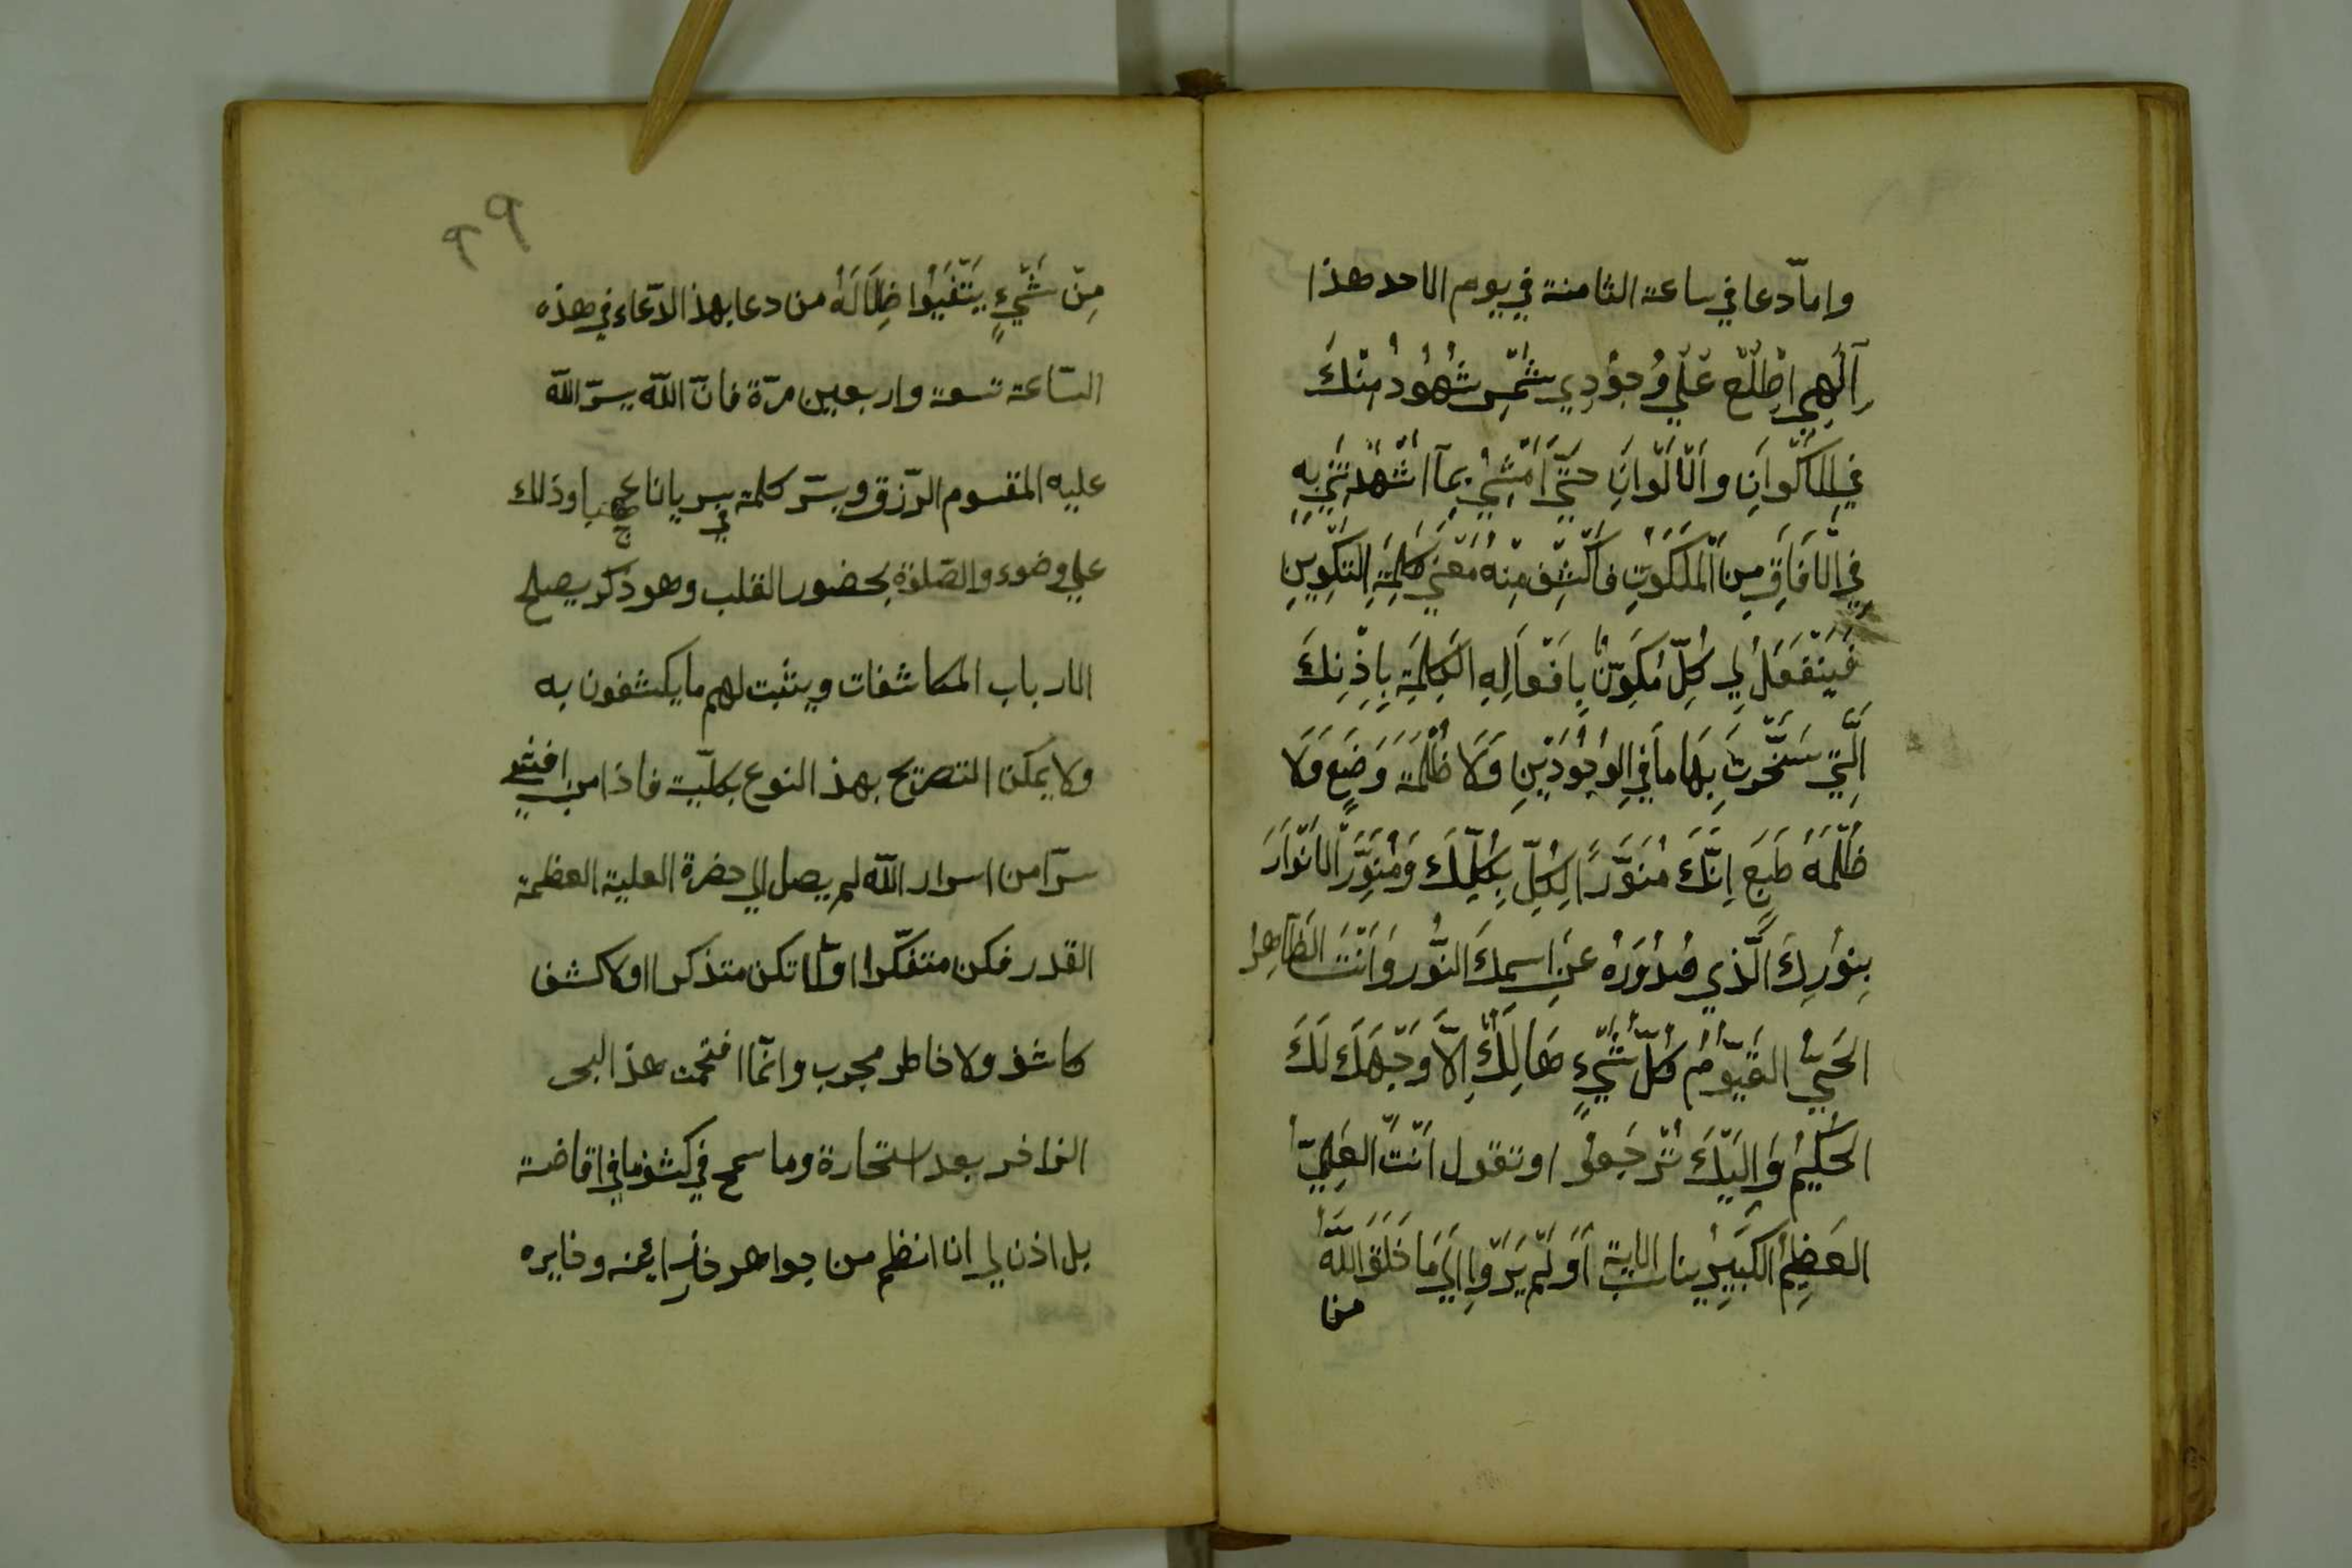 وامّا دعا في ساعة الثامنة في يوم الاحد هذا
اَلٓهِي اِطْلَعْ عَلَي وُجُوْدِي شَمْسِ شُهُوُدُ مِنْكَ
فِي الاَكْوَانِ وَالْاَلْوَانِ حَتّيَ اَمْشِيْ بِمَآ اَشْهَدْتَنِيِ بِهِ
فِي الْاَفَاقِ مِنَ الْمَلَكُوتِ فَاَكْشِفْ مِنْهُ مَعْنِيَ كَلِمَةِ التَكْوِينِ
فَيَنْفَعَلُ لِي كُلِّ مُكَوِّنٌ بِاَفْعَالِهِ الكَلِمَةِ بِاِذْنِكَ
اَلَّتِيْ سَخَّرْتَ بِهَا مَا فِي الوُجُوُدَيْنِ وَلَا ظُلْمَةَ وَضْعٍ وَلَا
ظُلْمَةُ طَبَعٍ اِنَّكَ مُنَوَّرًا لِكُلِّ بِكُلِّكَ وَمُنَوِّرَ الاَنْوَارَ
بِنُوْرِكَ الَّذِي صُدُوْرَهُ عَنِ اسِمِكَ النُّور وَاَنْتَ الظَآهِرُ
الحَيُّ القَيّوُمُ كُلّ شَيْءٍ هَالِكٌ اِلَّا وَجْهَكَ لَكَ
الحَكِيْمُ وَاِلَيْكَ تُرْجَعُوْ او تقول اَنْتَ العَلِيّ
العَظِيْمُ الكَبِيِرُ يناسب الاية اَوَلَمْ يَرَوْا اِلَيَ مَا خَلَقَ اللّهُ
من
٩٩
مِنْ شَيْءٍ يَتَفَيَّوُا ظِلَالَهُ من دعا بهذ الدّعاء في هذه
السّاعة تسعة واربعين مرّة فانّ اللّه يسرّ اللّه
عليه المقسوم الرّزق ويسّر كلمة في سريانا عجيبا وذلك
علي وضوء والصّلوة بحضور القلب وهو ذكر يصلح
الارباب المكاشفات ويثبت لهم ما يكشفون به
ولا يمكن التصريح بهذ النوع بكلّية فاذا من افشي
سرّا من اسرار اللّه لم يصل الي حضرة العلية العظمة
القدر فكن متفكّرا اوّلا تكن متذكرا اولا كشف
كاشف ولا خاطر مجرب وانّما افتحمت هذ البحر
الزاخر بعد استخارة وما سمح في كشف ما في اقاضة
بل اذن لي ان انظم من جواهر خزاينه وخايره